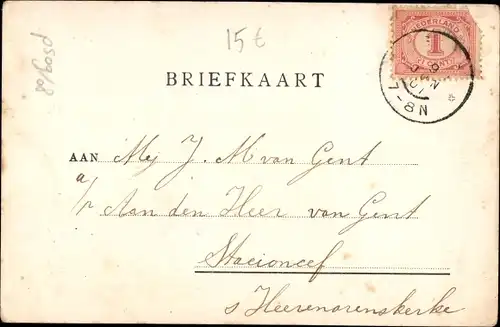 15€
NEDERLAND
1
CENT
BRIEFKAART
7-8N
AAN Mej J. M van Gent
a/r Aan den Heer van Gent
Stacioncef
s Heerenarenskerke